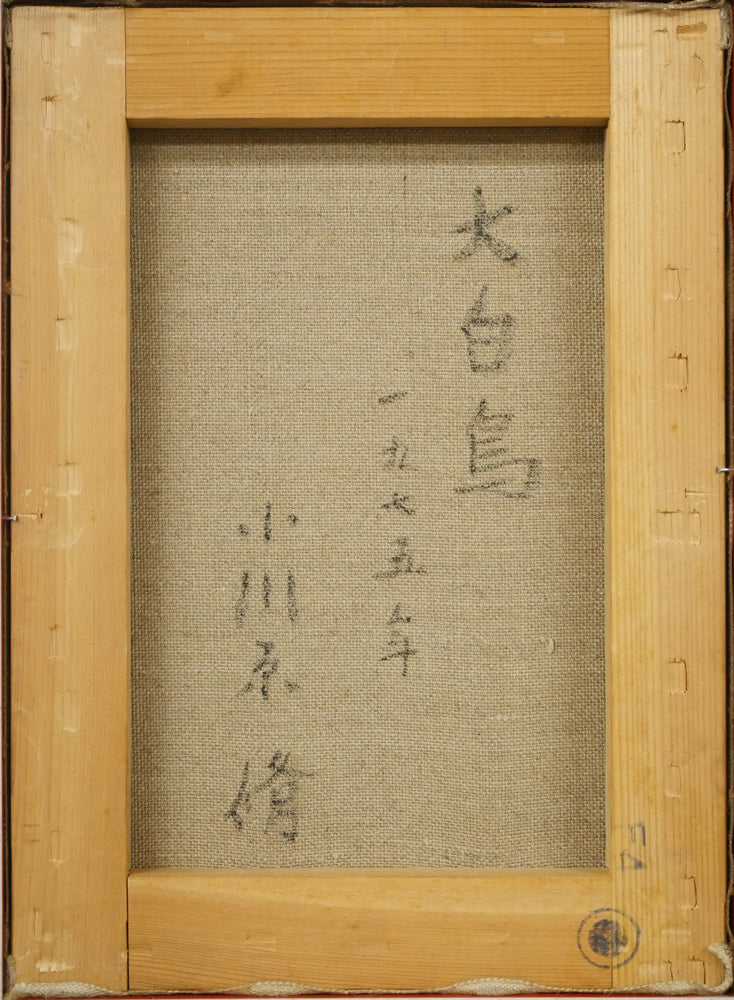 大白鳥
一九七五年
小川原脩
F4